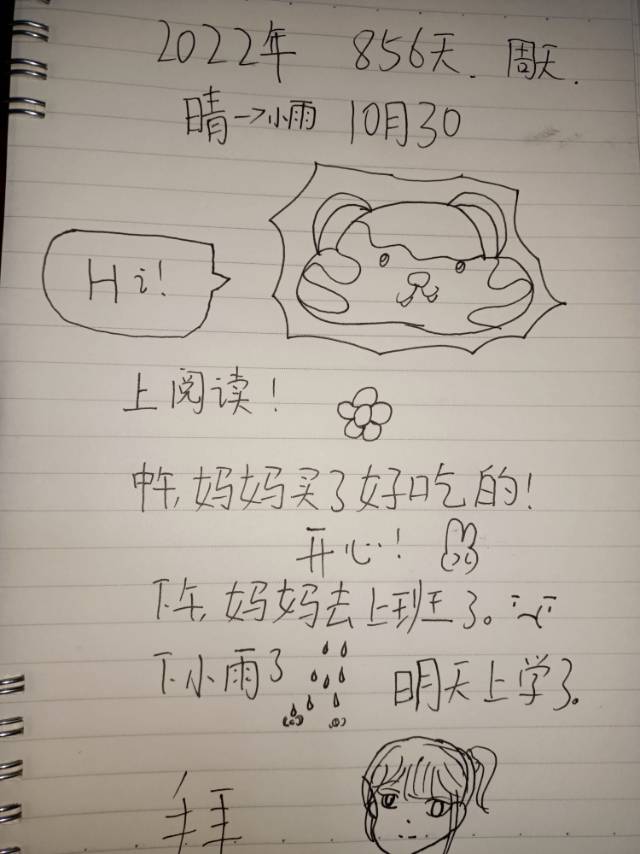 2022年 856天. 周天.
晴→小雨 10月30
Hi!
上阅读!
中午,妈妈买了好吃的!
开心!
下午,妈妈去上班了。
下小雨了 明天上学了。
拜